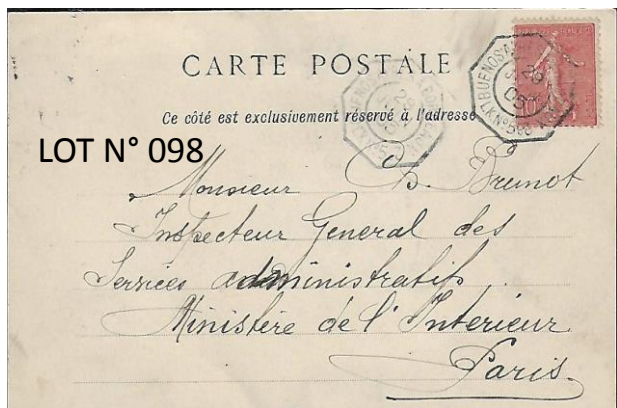 CARTE POSTALE
Ce côté est exclusivement réservé à l'adresse
LOT N° 098
Monsieur Ch. Brunot
Inspecteur General des
Services administratifs
Ministère de l'Interieur
Paris